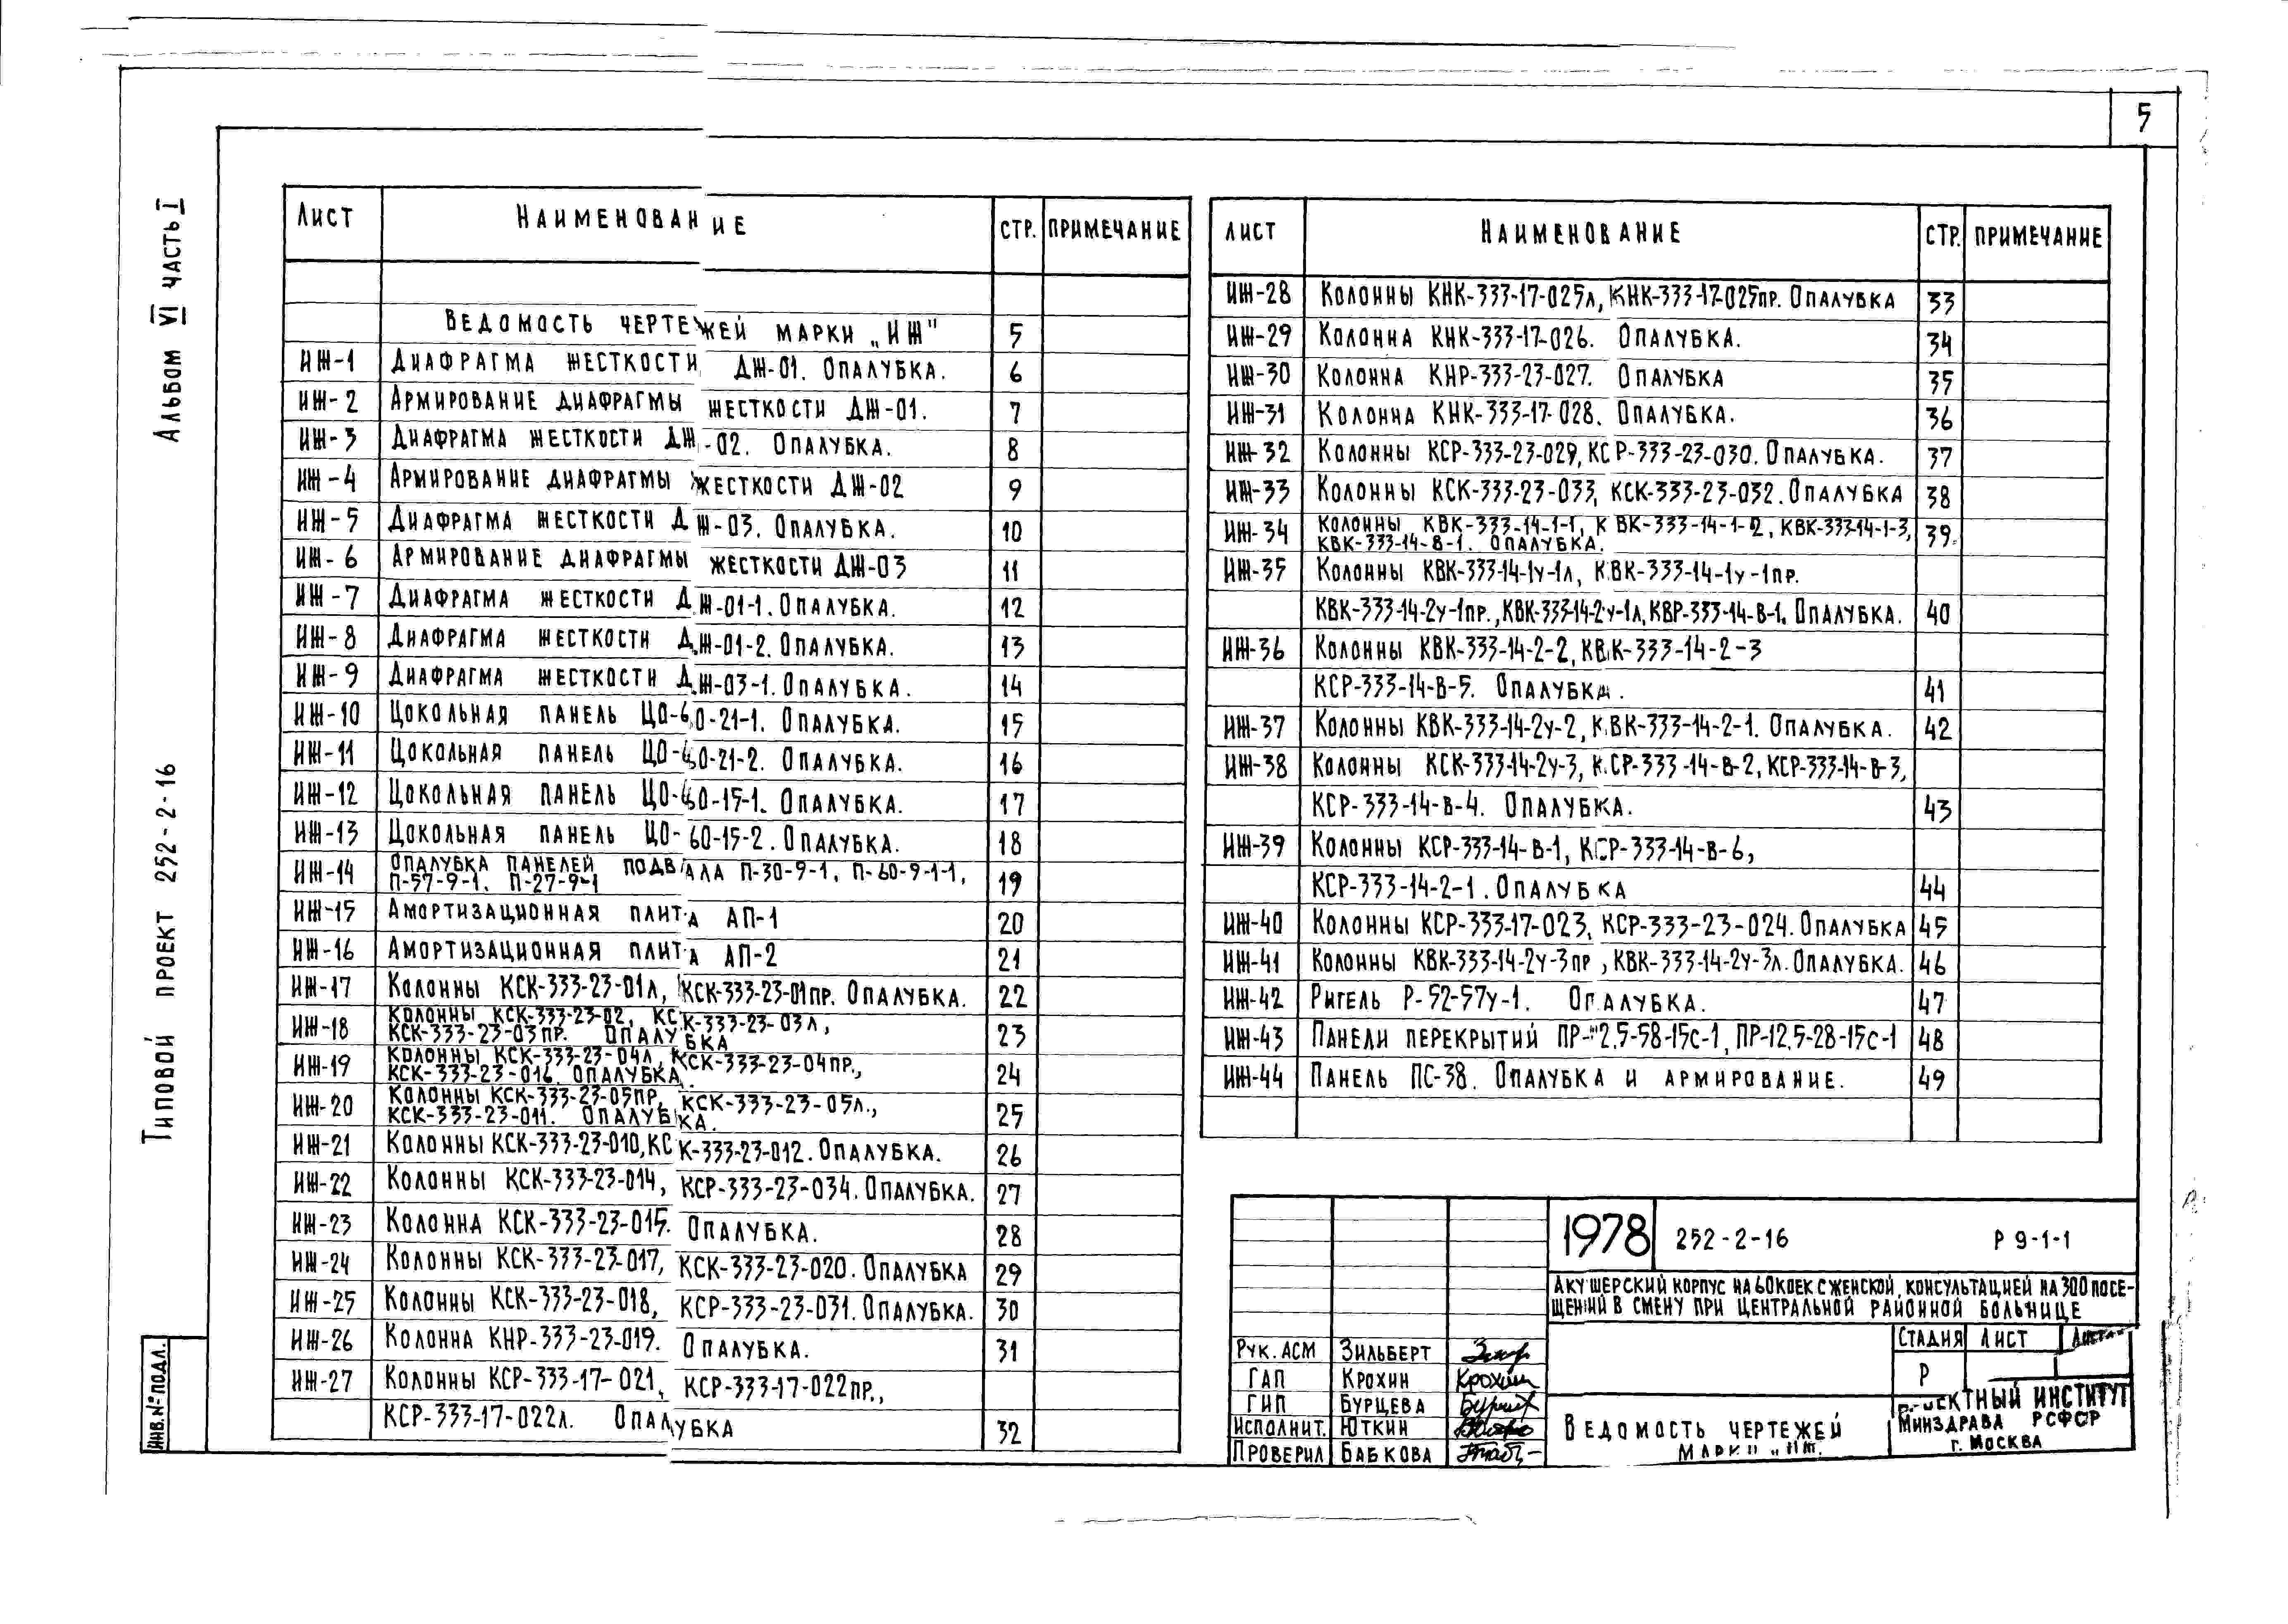 5
Альбом VI часть I
Типовой проект 252-2-16
Инв. № подл.
Лист Наименование Стр. Примечание
Ведомость чертежей марки „ИЖ" 5
ИЖ-1 Диафрагма жесткости ДЖ-01. Опалубка. 6
ИЖ-2 Армирование диафрагмы жесткости ДЖ-01. 7
ИЖ-3 Диафрагма жесткости ДЖ-02. Опалубка. 8
ИЖ-4 Армирование диафрагмы жесткости ДЖ-02 9
ИЖ-5 Диафрагма жесткости ДЖ-03. Опалубка. 10
ИЖ-6 Армирование диафрагмы жесткости ДЖ-03 11
ИЖ-7 Диафрагма жесткости ДЖ-01-1. Опалубка. 12
ИЖ-8 Диафрагма жесткости ДЖ-01-2. Опалубка. 13
ИЖ-9 Диафрагма жесткости ДЖ-03-1. Опалубка. 14
ИЖ-10 Цокольная панель ЦО-60-21-1. Опалубка. 15
ИЖ-11 Цокольная панель ЦО-60-21-2. Опалубка. 16
ИЖ-12 Цокольная панель ЦО-60-15-1. Опалубка. 17
ИЖ-13 Цокольная панель ЦО-60-15-2. Опалубка. 18
ИЖ-14 Опалубка панелей подвала П-30-9-1, П-60-9-1-1,
П-57-9-1. П-27-9-1 19
ИЖ-15 Амортизационная плита АП-1 20
ИЖ-16 Амортизационная плита АП-2 21
ИЖ-17 Колонны КСК-333-23-01л, КСК-333-23-01пр. Опалубка. 22
ИЖ-18 Колонны КСК-333-23-02, КСК-333-23-03л,
КСК-333-23-03пр. Опалубка 23
ИЖ-19 Колонны КСК-333-23-04л, КСК-333-23-04пр.,
КСК-333-23-016. Опалубка. 24
ИЖ-20 Колонны КСК-333-23-05пр, КСК-333-23-05л.,
КСК-333-23-011. Опалубка. 25
ИЖ-21 Колонны КСК-333-23-010, КСК-333-23-012. Опалубка. 26
ИЖ-22 Колонны КСК-333-23-014, КСР-333-23-034. Опалубка. 27
ИЖ-23 Колонна КСК-333-23-015. Опалубка. 28
ИЖ-24 Колонны КСК-333-23-017, КСК-333-23-020. Опалубка 29
ИЖ-25 Колонны КСК-333-23-018, КСР-333-23-031. Опалубка. 30
ИЖ-26 Колонна КНР-333-23-019. Опалубка. 31
ИЖ-27 Колонны КСР-333-17-021, КСР-333-17-022пр.,
КСР-333-17-022л. Опалубка 32
Лист Наименование Стр. Примечание
ИЖ-28 Колонны КНК-333-17-025л, КНК-333-17-025пр. Опалубка 33
ИЖ-29 Колонна КНК-333-17-026. Опалубка. 34
ИЖ-30 Колонна КНР-333-23-027. Опалубка 35
ИЖ-31 Колонна КНК-333-17-028. Опалубка. 36
ИЖ-32 Колонны КСР-333-23-029, КСР-333-23-030. Опалубка. 37
ИЖ-33 Колонны КСК-333-23-033, КСК-333-23-032. Опалубка 38
ИЖ-34 Колонны КВК-333-14-1-1, КВК-333-14-1-2, КВК-333-14-1-3,
КВК-333-14-8-1. Опалубка. 39
ИЖ-35 Колонны КВК-333-14-1у-1л, КВК-333-14-1у-1пр.
КВК-333-14-2у-1пр., КВК-333-14-2у-1л, КВР-333-14-в-1. Опалубка. 40
ИЖ-36 Колонны КВК-333-14-2-2, КВК-333-14-2-3
КСР-333-14-в-5. Опалубка. 41
ИЖ-37 Колонны КВК-333-14-2у-2, КВК-333-14-2-1. Опалубка. 42
ИЖ-38 Колонны КСК-333-14-2у-3, КСР-333-14-в-2, КСР-333-14-в-3,
КСР-333-14-в-4. Опалубка. 43
ИЖ-39 Колонны КСР-333-14-в-1, КСР-333-14-в-6,
КСР-333-14-2-1. Опалубка 44
ИЖ-40 Колонны КСР-333-17-023, КСР-333-23-024. Опалубка 45
ИЖ-41 Колонны КВК-333-14-2у-3пр, КВК-333-14-2у-3л. Опалубка. 46
ИЖ-42 Ригель Р-52-57у-1. Опалубка. 47
ИЖ-43 Панели перекрытий ПР-12,5-58-15с-1, ПР-12,5-28-15с-1 48
ИЖ-44 Панель ПС-38. Опалубка и армирование. 49
1978 252-2-16 Р 9-1-1
Акушерский корпус на 60 коек с женской, консультацией на 300 посе-
щений в смену при центральной районной больнице
Рук. АСМ Зильберт
ГАП Крохин Крохин
ГИП Бурцева
Исполнит. Юткин
Проверил Бабкова
Ведомость чертежей
марки „ИЖ.
Стадия Лист
Р
Проектный институт
Минздрава РСФСР
г. Москва